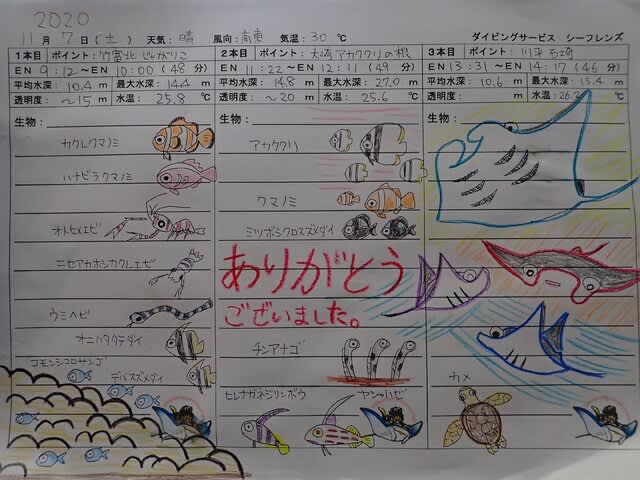 2020
11月 7日(土) 天気: 晴 風向: 南東 気温: 30 ℃ ダイビングサービス シーフレンズ
1本目 ポイント: 竹富北 じゃがりこ
EN 9:12 ~EN 10:00 (48 分)
平均水深: 10.4 m 最大水深: 14.4 m
透明度: ~15 m 水温: 25.8 ℃
生物:
カクレクマノミ
ハナビラクマノミ
オトヒメエビ
ニセアカホシカクレエビ
ウミヘビ
オニハタタテダイ
コモンシコロサンゴ
デバスズメダイ
2本目 ポイント: 大崎 アカククリの根
EN 11:22 ~EN 12:11 (49 分)
平均水深: 14.8 m 最大水深: 27.0 m
透明度: ~20 m 水温: 25.6 ℃
生物:
アカククリ
クマノミ
ミツボシクロスズメダイ
ありがとう
ございました。
チンアナゴ
ヒレナガネジリンボウ
ヤシャハゼ
3本目 ポイント: 川平 石崎
EN 13:31 ~EN 14:17 (46 分)
平均水深: 10.6 m 最大水深: 15.4 m
透明度: m 水温: 26.2
生物:
カメ